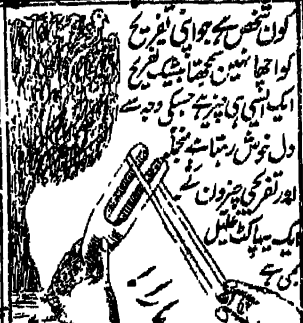 کون شخص ہے جو اپنی تفریح
کو اچھا نہین سمجھتا بیشک تفریح
ایک ایسی ہی چیز ہے جسکی وجہ سے
دل خوش رہتا ہے منجملہ
اور تفریحی چیزون کے
ایک یہ پاکٹ غلیل
بھی ہے